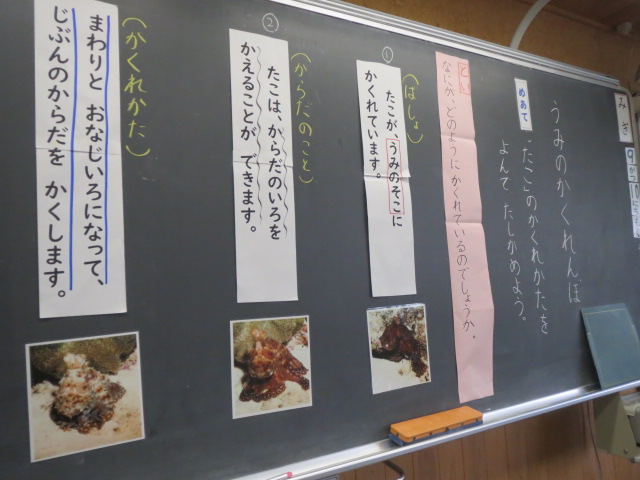 みぎ
うみのかくれんぼ
めあて
「たこ」のかくれかたを
よんで たしかめよう。
とい
なにが、どのようにかくれているのでしょうか。
①
(ばしょ)
たこが、うみのそこに
かくれています。
②
(からだのこと)
たこは、からだのいろを
かえることが できます。
(かくれかた)
まわりと おなじいろになって、
じぶんのからだを かくします。